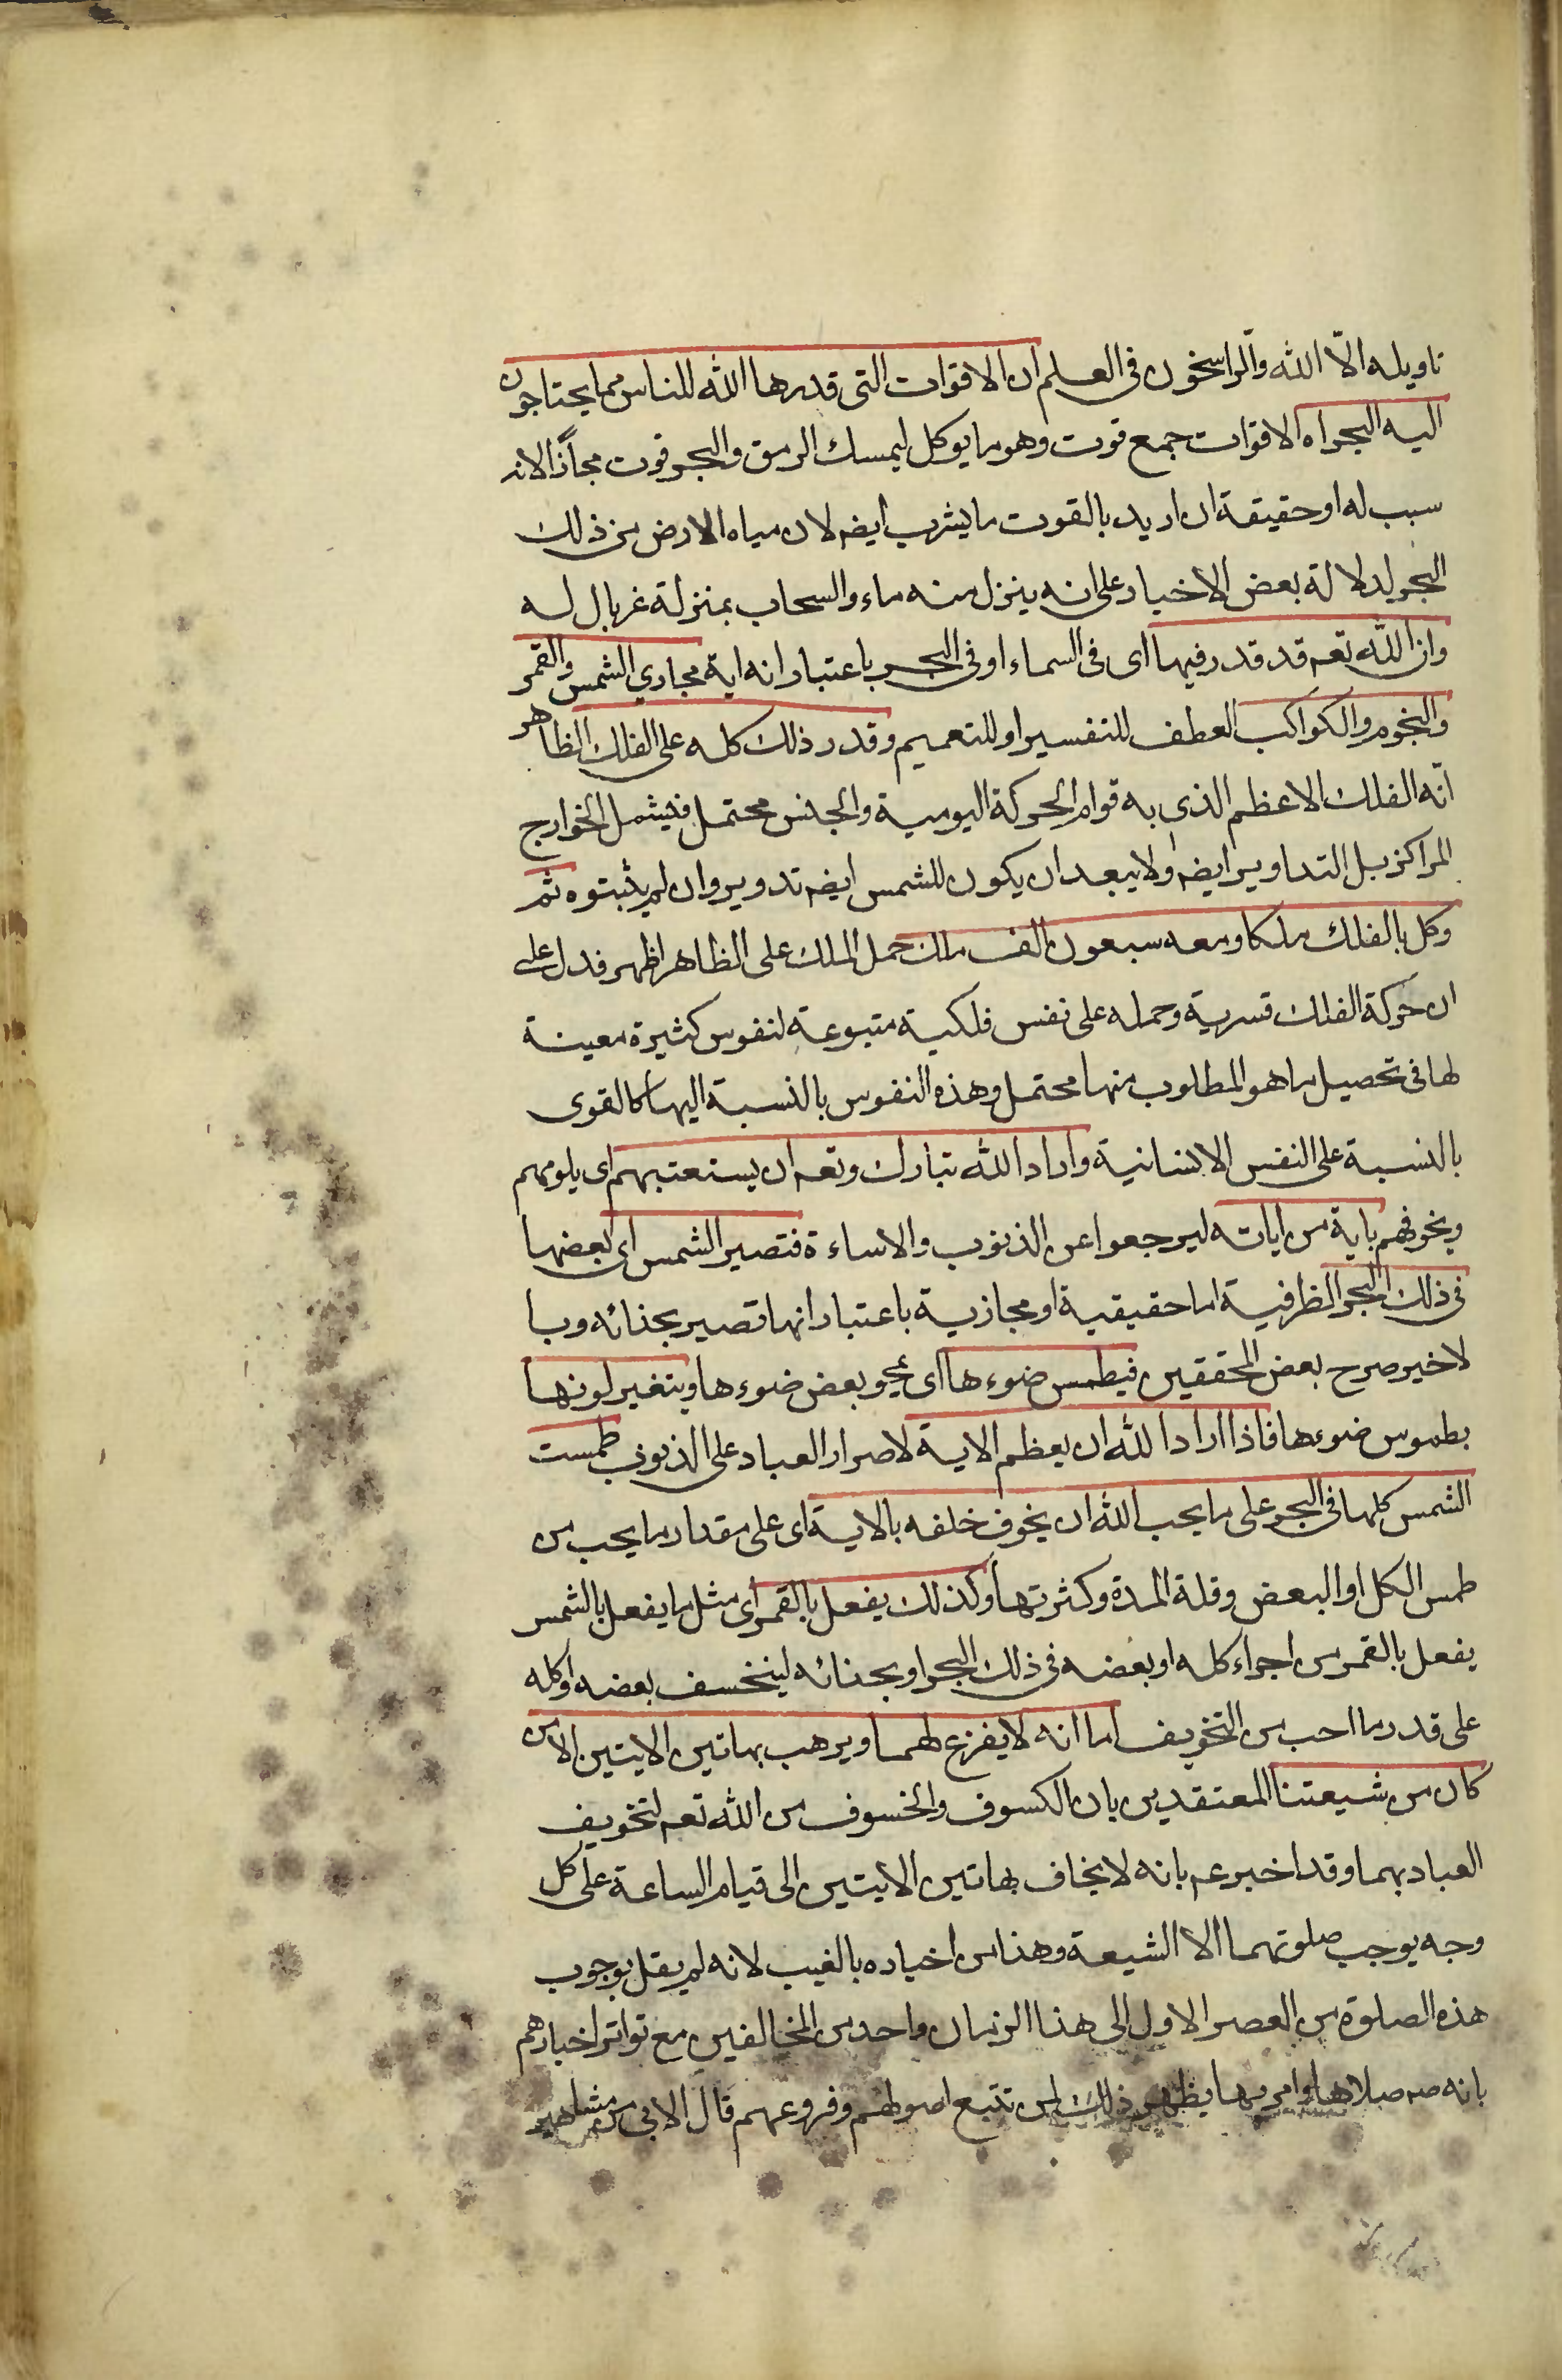 تاويله الّا الله والراسخون فى العلم ان الاقوات التى قدرها الله للناس مما يحتاجون
اليه البحر اه الاقوات جمع قوت وهو ما يوكل ليمسك الرمق والبحر قوت مجازًا لانه
سبب له او حقيقة ان اريد بالقوت ما يشرب ايضه لان مياه الارض من ذلك
البحر لدلالة بعض الاخبار على انه ينزل منه ماء والسحاب بمنزلة غربال له
وان الله تعه قد قدر فيها اى فى السماء او فى البحر باعتبار انه اية مجاري الشمس والقمر
والنجوم والكواكب العطف للتفسير او للتعميم وقدر ذلك كله على الفلك الظاهر
انّه الفلك الاعظم الذى به قوام الحركة اليومية والجنس محتمل فيشمل الخوارج
المراكز بل التداوير ايضه ولا يبعد ان يكون للشمس ايضه تدوير وان لم يثبتوه ثم
وكل بالفلك ملكا ومعه سبعون الف ملك حمل الملك على الظاهر اظهر فدل على
ان حركة الفلك قسرية وحمله على نفس فلكية متبوعة لنفوس كثيرة معينة
لها فى تحصيل ما هو المطلوب منها محتمل وهذه النفوس بالنسبة اليها كالقوى
بالنسبة على النفس الانسانية واراد الله تبارك وتعه ان يستعتبهم اى يلومهم
ويخوفهم باية من اياته ليرجعوا عن الذنوب والاساءة فتصير الشمس اى بعضها
فى ذلك البحر الظرفية اما حقيقية او مجازية باعتبار انها تصير بحذائه وبا
لاخير صرح بعض المحققين فيطمس ضوءها اى يمحو بعض ضوءها ويتغير لونها
بطموس ضوءها فاذا اراد الله ان يعظم الاية لاصرار العباد على الذنوب طمست
الشمس كلها فى البحر على ما يحب الله ان يخوف خلقه بالاية اى على مقدار ما يحب من
طمس الكل او البعض وقلة المدة وكثرتها وكذلك يفعل بالقمر اى مثل ما يفعل بالشمس
يفعل بالقمر من اجراء كله او بعضه فى ذلك البحر او بحذائه لينخسف بعضه او كله
على قدر ما احب من التخويف اما انه لا يفزع لهما ويرهب بهاتين الايتين الا من
كان من شيعتنا المعتقدين بان الكسوف والخسوف من الله تعه لتخويف
العباد بهما وقد اخبر عم بانه لا يخاف بهاتين الايتين الى قيام الساعة على كل
وجه يوجب صلوتهما الا الشيعة وهذا من اخباره بالغيب لانه لم يقل بوجوب
هذه الصلوة من العصر الاول الى هذا الزمان واحد من المخالفين مع تواتر اخبارهم
بانه صه صلاها وامر بها يظهر ذلك لمن تتبع اصولهم وفروعهم قال الابى من مشاهير